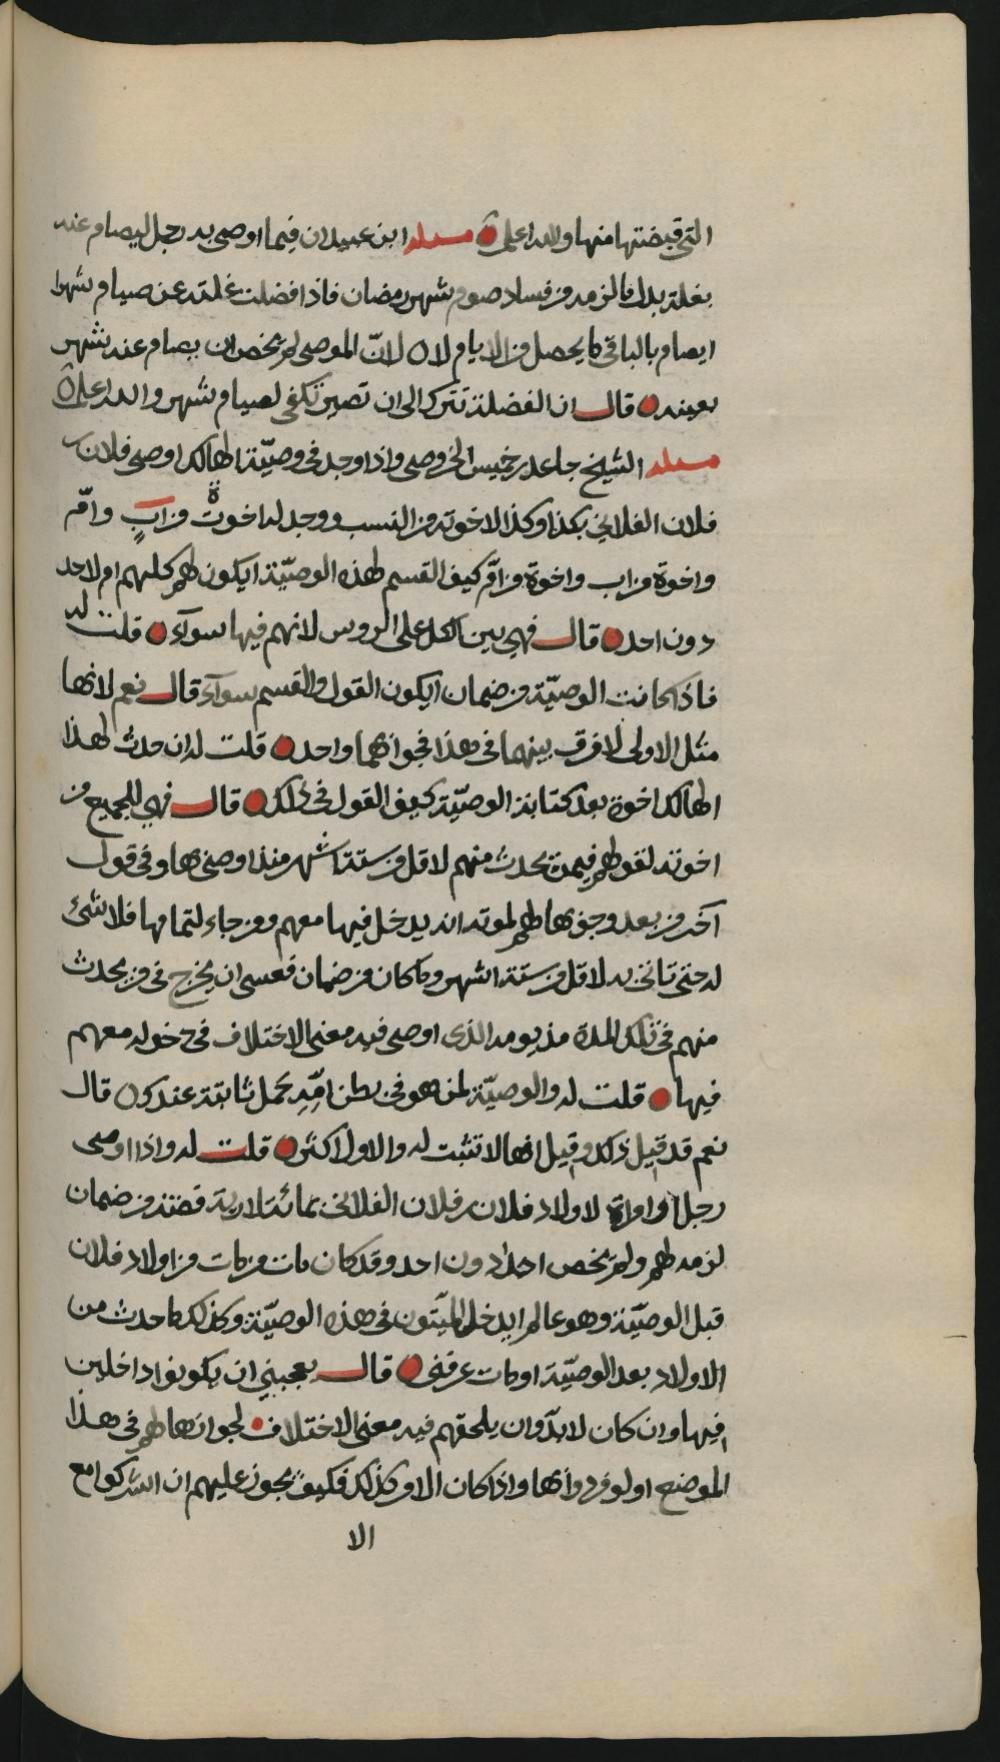 التي قبضتها منها والله اعلم مسئلة ابن عبيدان فيما اوصى به رجل ليصام عنه
بغلة بدل ما لزمه من فساد صوم شهر رمضان فاذا فضلت غلته عن صيام شهرا
ايصام بالباقي ما يحصل من الايام لا ٥ لانّ الموصي لم يخص ان يصام عنه شهر
بعينه قال ان الفضلة تترك الى ان تصير تكفي لصيام شهر والله اعلم
مسئلة الشيخ جاعد بن خميس الخروصي واذا وجد في وصيّة الهالك اوصى فلان بن
فلان الفلاني بكذا وكذا لاخوته من النسب ووجد له اخوة من ابٍ وامّ
واخوة من اب واخوة من امّ كيف القسم لهذه الوصيّة ايكون لهم كلهم ام لاحد
دون احد قال فهي بين الكل على الروس لانهم فيها سوآء قلت له
فاذا كانت الوصيّة من ضمان ايكون القول والقسم سوآء قال نعم لانها
مثل الاولى لا فرق بينهما في هذا فجوابهما واحد قلت له ان حدث لهذا
الهالك اخوة بعد كتابة الوصيّة كيف القول في ذلك قال فهي للجميع من
اخوته لقولهم فيمن يحدث منهم لاقل من ستة اشهر منذ اوصى بها وفي قول
آخر من بعد وجوبها لهم لموته انه يدخل فيها معهم ومن جاء لتمامها فلا شئ
له حتى تاتي به لاقل من ستة اشهر وما كان من ضمان فعسى ان يخرج في من يحدث
منهم في تلك المدة مذ يومه الذي اوصى فيه معنى الاختلاف في دخوله معهم
فيها قلت له والوصيّة لمن هو في بطن امّهِ بحمل ثابتة عندك ٥ قال
نعم قد قيل ذلك وقيل انها لا تثبت له والاول اكثر قلت له واذا اوصى
رجل او امراة لاولاد فلان بن فلان الفلاني بمائة لارية فضة من ضمان
لزمه لهم ولم يخص احدا دون احد وقد كان مات من مات من اولاد فلان
قبل الوصيّة وهو عالم ايدخل الميّتون في هذه الوصيّة وكذلك ما حدث من
الاولاد بعد الوصيّة او مات عرفني قال يعجبني ان يكونوا داخلين
فيها وان كان لابدّ وان يلحقهم فيه معنى الاختلاف لجوازها لهم في هذا
الموضع او لورودأها واذا كان الامر كذلك فكيف يجوز عليهم ان اشركوا مع
الا